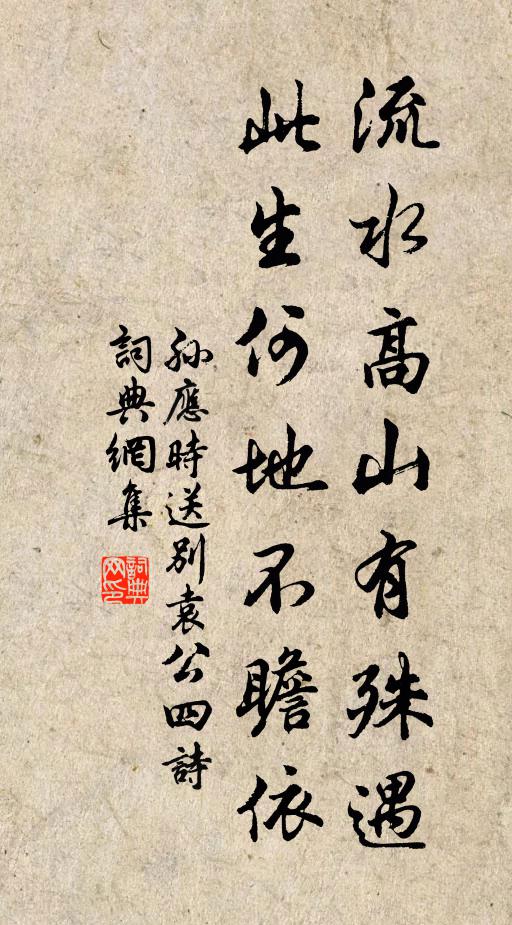 流水高山有殊遇
此生何地不瞻依
孫應時送別袁公四詩
詞典網集
詞典網印